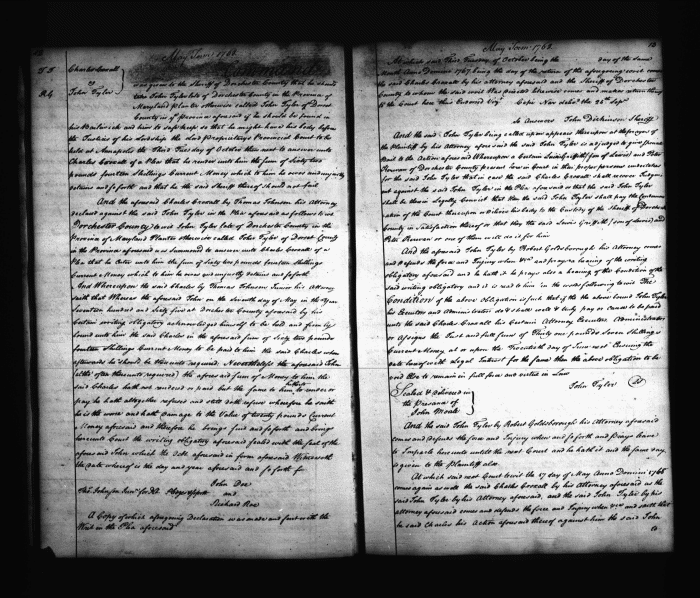 May Term 1768
TJ Charles Crocall
vs
R4 John Tyler
was given to the Sheriff of Dorchester County that he should
take John Tyler late of Dorchester County in the Province of
Maryland Planter otherwise called John Tyler of Dorset
County in ye Province aforesaid if he should be found in
his Bailiwick and him so safe keep so that he might have his body before
the Justices of his Lordship the Lord Proprietary's Provincial Court to be
held at Annapolis the third Tuesday of October then next to answer unto
Charles Crocall of a Plea that he render unto him the sum of Sixty two
pounds fourteen Shillings Current Money which to him he owes and unjustly
detains and so forth and that he the said Sheriff thereof should not fail
And the aforesaid Charles Crocall by Thomas Johnson his Attorney
declared against the said John Tyler in the Plea aforesaid as follows to wit
Dorchester County to wit John Tyler late of Dorchester County in the
Province of Maryland Planter otherwise called John Tyler of Dorset County
in the Province aforesaid was summoned to answer unto Charles Crocall of a
Plea that he render unto him the sum of Sixty two pounds fourteen Shillings
Current Money which to him he owes and unjustly detains and so forth
And Whereupon the said Charles by Thomas Johnson Junior his Attorney
saith that Whereas the aforesaid John on the Seventh day of May in the Year
Seventeen hundred and Sixty five at Dorchester County aforesaid by his
Certain writing obligatory acknowledged himself to be held and firmly
bound unto him the said Charles in the aforesaid sum of Sixty two pounds
fourteen Shillings Current Money to be paid to him the said Charles when
afterwards he should be thereunto required Nevertheless the aforesaid John
(altho' often thereunto required) the aforesaid sum of Money to him the
said Charles hath not rendered or paid but the same to him to render or
pay he hath altogether refused and still doth refuse wherefore he saith
he is the worse and hath Damage to the Value of twenty pounds Current
Money aforesaid and therefore he brings suit and so forth and brings
here into Court the writing obligatory aforesaid sealed with the Seal of the
aforesaid John which the debt aforesaid in form aforesaid Witnesseth
the Date whereof is the day and year aforesaid and so forth
John Doe
Thos Johnson Junr for Plt Pledges &c
and
Richard Roe
A Copy of which aforegoing Declaration was made and sent with the
Writ in the Plea aforesaid
May Term 1768
10
At which said Third Tuesday of October being the day of the same
Month Anno Domini 1767 being the day of the return of the aforegoing writ comes
the said Charles Crocall by his attorney aforesaid and the Sheriff of Dorchester
County to whom the said writ was directed likewise comes and makes return thereof
to the Court here thus Endorsed Cepi
So Answers John Dickinson Sheriff
And the said John Tyler being called upon appears thereupon at the prayer of
the Plaintiff by his Attorney aforesaid the said John Tyler is adjudged to give
Bail to the Action aforesaid Whereupon a Certain Lewis Griffith (son of Lewis) and Peter
of Dorchester County present here in Court in their proper persons undertakes
for the said John Tyler that in case the said Charles Crocall shall recover Judgment
against the said John Tyler in the Plea aforesaid or that the said John Tyler
shall be therein legally Convict that then the said John Tyler shall pay the Condemnation
of the Court thereupon or deliver his body to the Custody of the Sheriff of Dorchester
County in Satisfaction thereof or that they the said Lewis Griffith (son of Lewis) and
Peter or one of them will do it for him
And the aforesaid John Tyler by Robert Goldsborough his Attorney comes
and defends the force and Injury when &ca and prays a hearing of the writing
obligatory aforesaid and he hath it he prays also a hearing of the Condition of the
said writing obligatory and it is read to him in the words following to wit The
Condition of the above obligation is such that if the above bound John Tyler
his Executors and Administrators do & shall well & truly pay or cause to be paid
unto the said Charles Crocall his Certain Attorney Executors Administrators
or Assigns the Just and full sum of Thirty one pounds Seven shillings
Current Money at or upon the Twentieth day of June next Ensuing the
date hereof with legal Interest for the same then the above obligation to be
void Else to remain in full force and virtue in Law
Sealed & Delivered in
the Presence of
John Moale
John Tyler
And the said John Tyler by Robert Goldsborough his Attorney aforesaid
comes and defends the force and Injury when and so forth and prays leave
to Imparle here unto until the next Court and he hath it and the same day
is given to the Plaintiff also
At which said next Court to wit the 17 day of May Anno Domini 1768
comes again as well the said Charles Crocall by his Attorney aforesaid as the
said John Tyler by his Attorney aforesaid, and the said John Tyler by his
attorney aforesaid comes and defends the force and Injury when &ca and saith that
he the said Charles his Action aforesaid thereof against him the said John